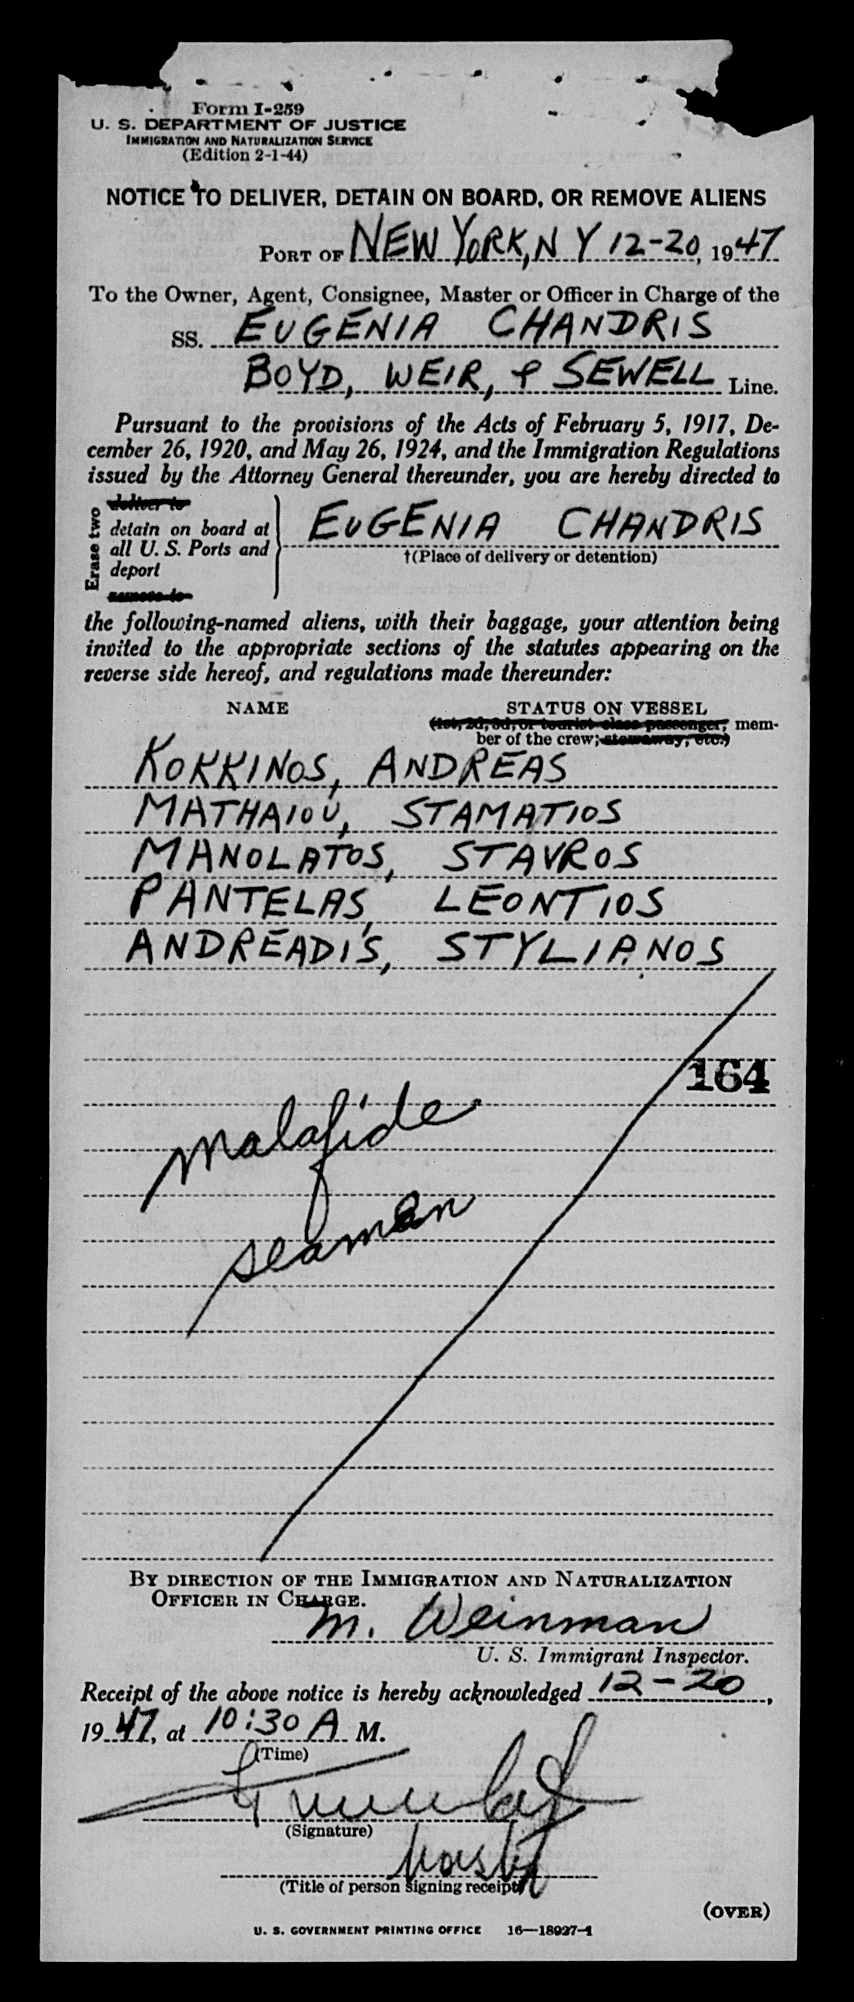 Form I-259
U. S. DEPARTMENT OF JUSTICE
IMMIGRATION AND NATURALIZATION SERVICE
(Edition 2-1-44)
NOTICE TO DELIVER, DETAIN ON BOARD, OR REMOVE ALIENS
PORT OF NEW YORK, N Y 12-20, 1947
To the Owner, Agent, Consignee, Master or Officer in Charge of the
SS. EUGENIA CHANDRIS
BOYD, WEIR, & SEWELL Line.
Pursuant to the provisions of the Acts of February 5, 1917, De-
cember 26, 1920, and May 26, 1924, and the Immigration Regulations
issued by the Attorney General thereunder, you are hereby directed to
Erase two
deliver to
detain on board at
all U. S. Ports and
deport
remove to
EUGENIA CHANDRIS
†(Place of delivery or detention)
the following-named aliens, with their baggage, your attention being
invited to the appropriate sections of the statutes appearing on the
reverse side hereof, and regulations made thereunder:
NAME STATUS ON VESSEL
(1st, 2d, 3d, or tourist class passenger, mem-
ber of the crew, stowaway, etc.)
KOKKINOS, ANDREAS
MATHAIOU, STAMATIOS
MANOLATOS, STAVROS
PANTELAS, LEONTIOS
ANDREADIS, STYLIANOS
164
malafide
seaman
BY DIRECTION OF THE IMMIGRATION AND NATURALIZATION
OFFICER IN CHARGE.
M. Weinman
U. S. Immigrant Inspector.
Receipt of the above notice is hereby acknowledged 12-20,
1947, at 10:30 A M.
(Time)
(Signature)
(Title of person signing receipt)
(OVER)
U. S. GOVERNMENT PRINTING OFFICE 16—18927-1